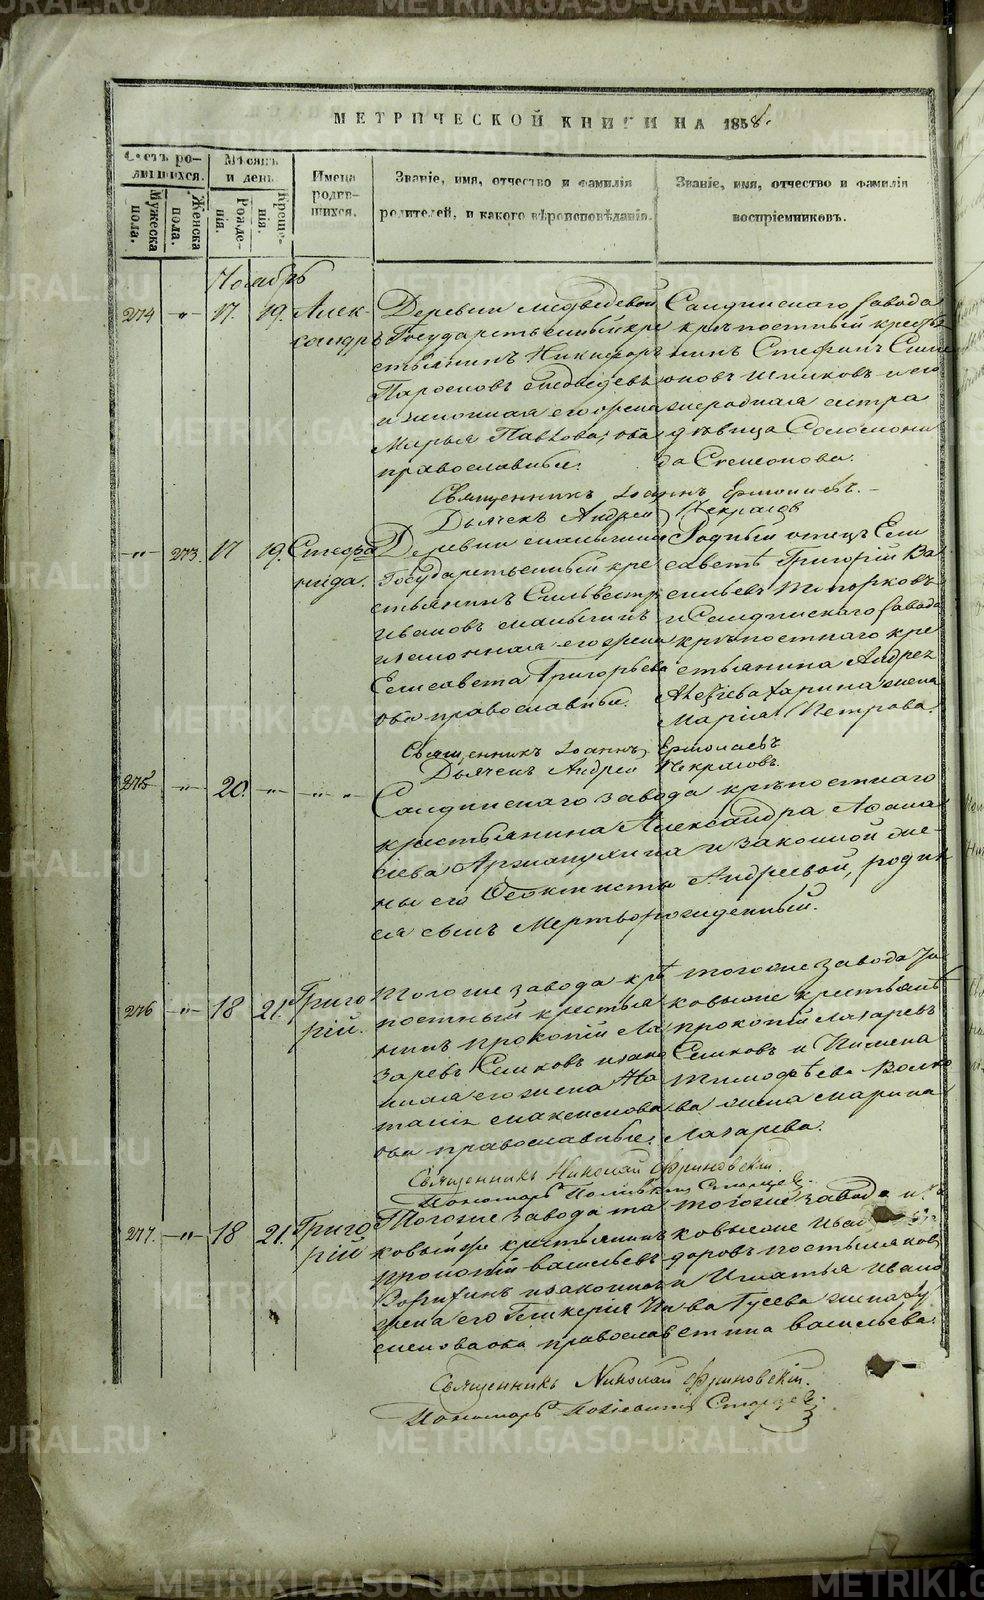 МЕТРИЧЕСКОЙ КНИГИ НА 1858.
Счетъ родившихся.
Мужеска пола.
Женска пола.
Мѣсяцъ и день
Рожденія.
Крещенія.
Имена родившихся.
Званіе, имя, отчество и фамилія родителей, и какого вѣроисповѣданія.
Званіе, имя, отчество и фамилія воспріемниковъ.
Ноябрь
274 „ 17. 19. Александръ
Деревни Медведевой
Государственный кре
стьянинъ Никифоръ
Медведевъ
и законная его жена
Марья Павлова, оба
православные.
Салдинскаго завода
крѣпостный крестья
нинъ Стефанъ Симе
оновъ и его
родная сестра
дѣвица Соломони
да Семенова.
Священникъ Іоаннъ Ермолаевъ.
Дьячекъ Андрей Некрасов
„ 273. 17 19.
Деревни
Государственный кре
стьянинъ Сильвестр
Ивановъ
и законная его жена
Елисавета Григорьева
оба православные.
Родный отецъ Ели
саветы Григорій Ва
сильевъ Топорковъ
и Салдинскаго завода
крѣпостнаго кре
стьянина Андрея
жена
Марія Петрова.
Священникъ Іоаннъ Ермолаевъ
Дьячекъ Андрей Некрасовъ.
275 „ 20. „ „ „
Салдинскаго завода крѣпостнаго
крестьянина Александра Афана
сіева и законной же
ны его Феоктисты Андреевой, родил
ся сынъ мертворожденный.
276 „ 18 21. Григорій.
Тогоже завода крѣ
постный крестья
нинъ Прокопій Ла
заревъ и закон
ная его жена На
талія Максимова
оба православные.
тогоже завода та
ковыеже крестьянѣ
Прокопій Лазаревъ
и Пимена
Тимофѣева Волко
ва жена Марина
Лазарева.
Священникъ Николай Фриновскій.
Пономарь Старцев
277. „ 18 21. Григорій
Тогоже завода та
ковый же крестьянинъ
Прокопій Васильевъ
и законная
жена его Гликерія
оба православ
тогоже завода и та
ковыеже Иван
и Игнатья Ивано
ва Гусева жена Ју
стина Васильева.
Священникъ Николай Фриновскій.
Пономарь Старцев
METRIKI.GASO-URAL.RU